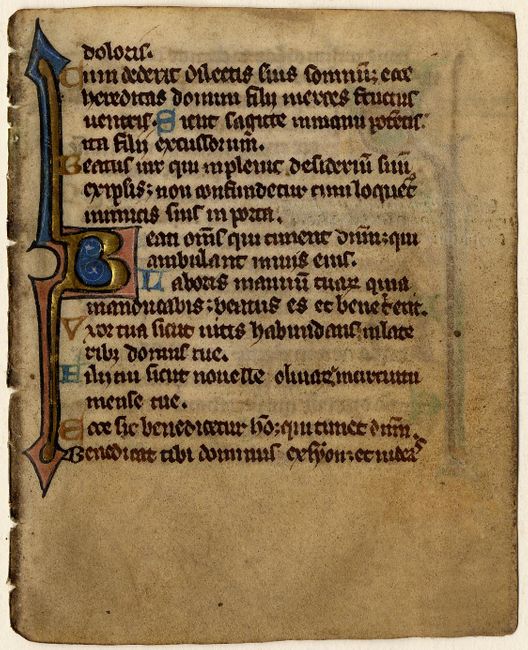 doloris.
Cum dederit dilectis suis somnũ; ecce
hereditas domini filii merces fructus
uentris. Sicut sagitte inmanu potẽtis:
ita filii excussorum.
Beatus uir qui inpleuit desideriũ suũ
exipsis; non confundetur cum loquet᷑
inimicis suis in porta.
Beati om̃s qui timent dnm̃; qui
ambulant inuiis eius.
Labores manuũ tuar̃ quia
manducabis; beatus es et bene t̃ erit.
Vxor tua sicut uitis habundans inlate
ribȝ domus tue.
Filii tui sicut nouelle oliuar̃ incircuitu
mense tue.
Ecce sic benedicetur hõ; qui timet dnm̃.
Benedicat tibi dominus exsyon; et uideas